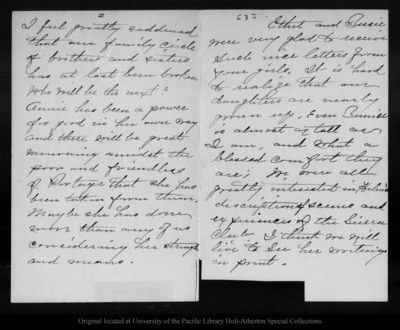 2
I feel greatly saddened
that our family circle
of brothers and sisters
has at last been broken
Who will be the next?
Annie has been a power
for good in her own way
and there will be great
mourning amidst the
poor and friendless
of Portage that she has
been taken from them.
Maybe she has done
more than any of us
considering her strength
and means.
Ethel and
were very glad to receive
such nice letters from
your girls. It is hard
to realize that our
daughters are nearly
grown up. Even
is almost as tall as
I am, and what a
blessed comfort they
are; We were all
greatly interested in
description of scenes and
experiences of the Sierra
Club. I think we will
live to see her writings
in print.
Original located at University of the Pacific Library Holt-Atherton Special Collections